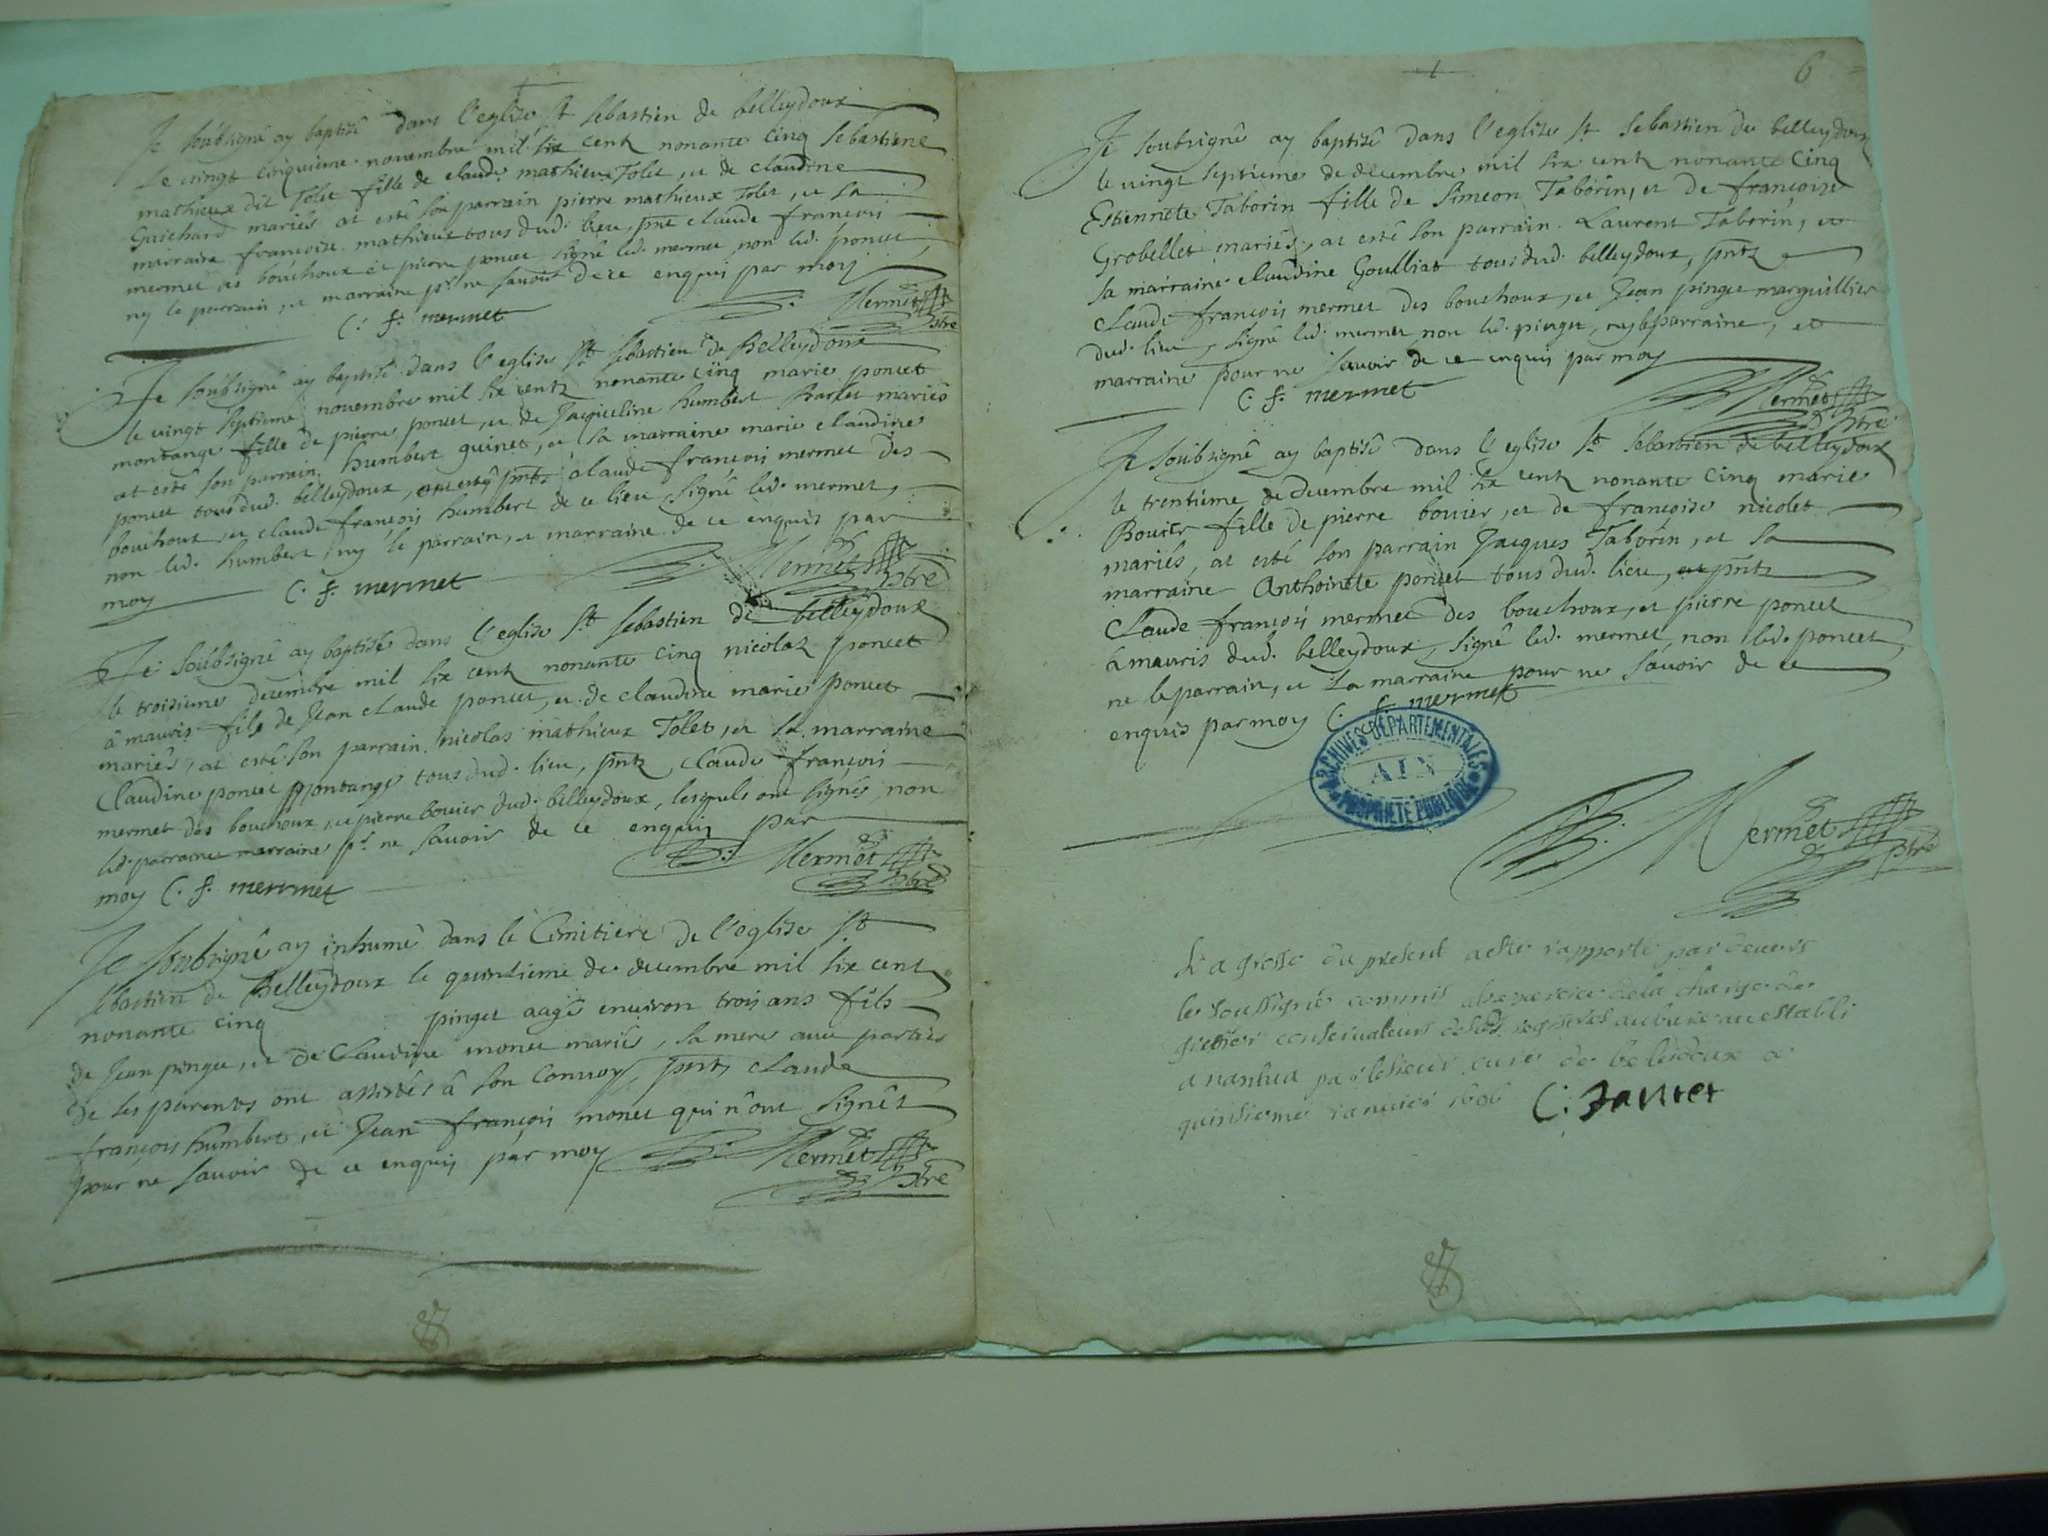 Je soubsigné ay baptisé dans l'eglise St sebastien de belleydoux
Le vingt cinquieme novembre mil six cent nonante cinq sebastiene
mathieux dit Tolet fille de claude mathieux Tolet, et de claudine
Guichard mariés at esté son parrain pierre mathieux Tolet, et sa
marraine francoise mathieux tous dud. lieu, pnt claude francois
mermet des bouchoux et pierre poncet signé led. mermet non led. poncet,
ny le parrain, et marraine pr. ne savoir de ce enquis par moy
C. f. mermet
B. Mermet
ptre
Je soubsigné ay baptisé dans l'eglise St sebastien de Belleydoux
le vingt septieme novembre mil six cent nonante cinq marie poncet
montange fille de pierre poncet, et de Jacqueline humbert mariés
at esté son parrain humbert guinet, et sa marraine marie claudine
poncet tous dud. belleydoux, pnts claude françois mermet des
bouchoux, et claude françois humbert de ce lieu signé led. mermet,
non led. humbert, ny le parrain, et marraine de ce enquis par
moy C. f. mermet
B. Mermet
ptre
Je soubsigné ay baptisé dans l'eglise St sebastien de belleydoux
le troisieme decembre mil six cent nonante cinq nicolas poncet
à mauris fils de Jean claude poncet, et de claudine marie poncet
mariés, at esté son parrain nicolas mathieux Tolet, et sa marraine
Claudine poncet montange tous dud. lieu, pnts, claude françois
mermet des bouchoux, et pierre bouvier dud. belleydoux, lesquels ont signés non
led. parrain marraine pr. ne savoir de ce enquis par
moy C. f. mermet
B. Mermet
ptre
Je soubsigné ay inhumé dans le Cimitiere de l'eglise St
sebastien de Belleydoux le quinsieme de decembre mil six cent
nonante cinq pinget aagé environ trois ans fils
de Jean pinget, et de Claudine monet mariés, sa mere avec parties
de ses parents ont assistés à son Convoy, pnts claude
françois humbert, et Jean françois monet qui n'ont signés
pour ne savoir de ce enquis par moy
B. Mermet
ptre
6
Je soubsigné ay baptisé dans l'eglise St sebastien de belleydoux
le vingt septieme de decembre mil six cent nonante cinq
Estiennete Taborin fille de Simeon Taborin, et de françoise
Grobellet mariés, at esté son parrain Laurent Taborin, et
sa marraine claudine Goulliat tous dud. belleydoux, pnts
claude françois mermet des bouchoux, et Jean pinget marguillier
dud. lieu, signé led. mermet non led. pinget, ny le parraine, et
marraine pour ne savoir de ce enquis par moy
C. f. mermet
B. Mermet
ptre
Je soubsigné ay baptisé dans l'eglise St sebastien de belleydoux
le trentieme de decembre mil six cent nonante cinq marie
Bouvier fille de pierre bouvier, et de françoise nicolet
mariés, at esté son parrain Jacques Taborin, et sa
marraine Anthoinete poncet tous dud. lieu, pnts
Claude françois mermet des bouchoux, et pierre poncet
à mauris dud. belleydoux, signé led. mermet non led. poncet,
ne le parrain, et la marraine pour ne savoir de ce
enquis par moy C. f. mermet
ARCHIVES DÉPARTEMENTALES
AIN
PROPRIÉTÉ PUBLIQUE
B. Mermet
ptre
La grosse du present acte rapporté par devers
le soussigné commis a l'exercice de la charge de
greffier conservateur desd. registres au bureau establi
a nantua par le sieur curé de beleidoux ce
quinsieme janvier 1696 C. Jantet